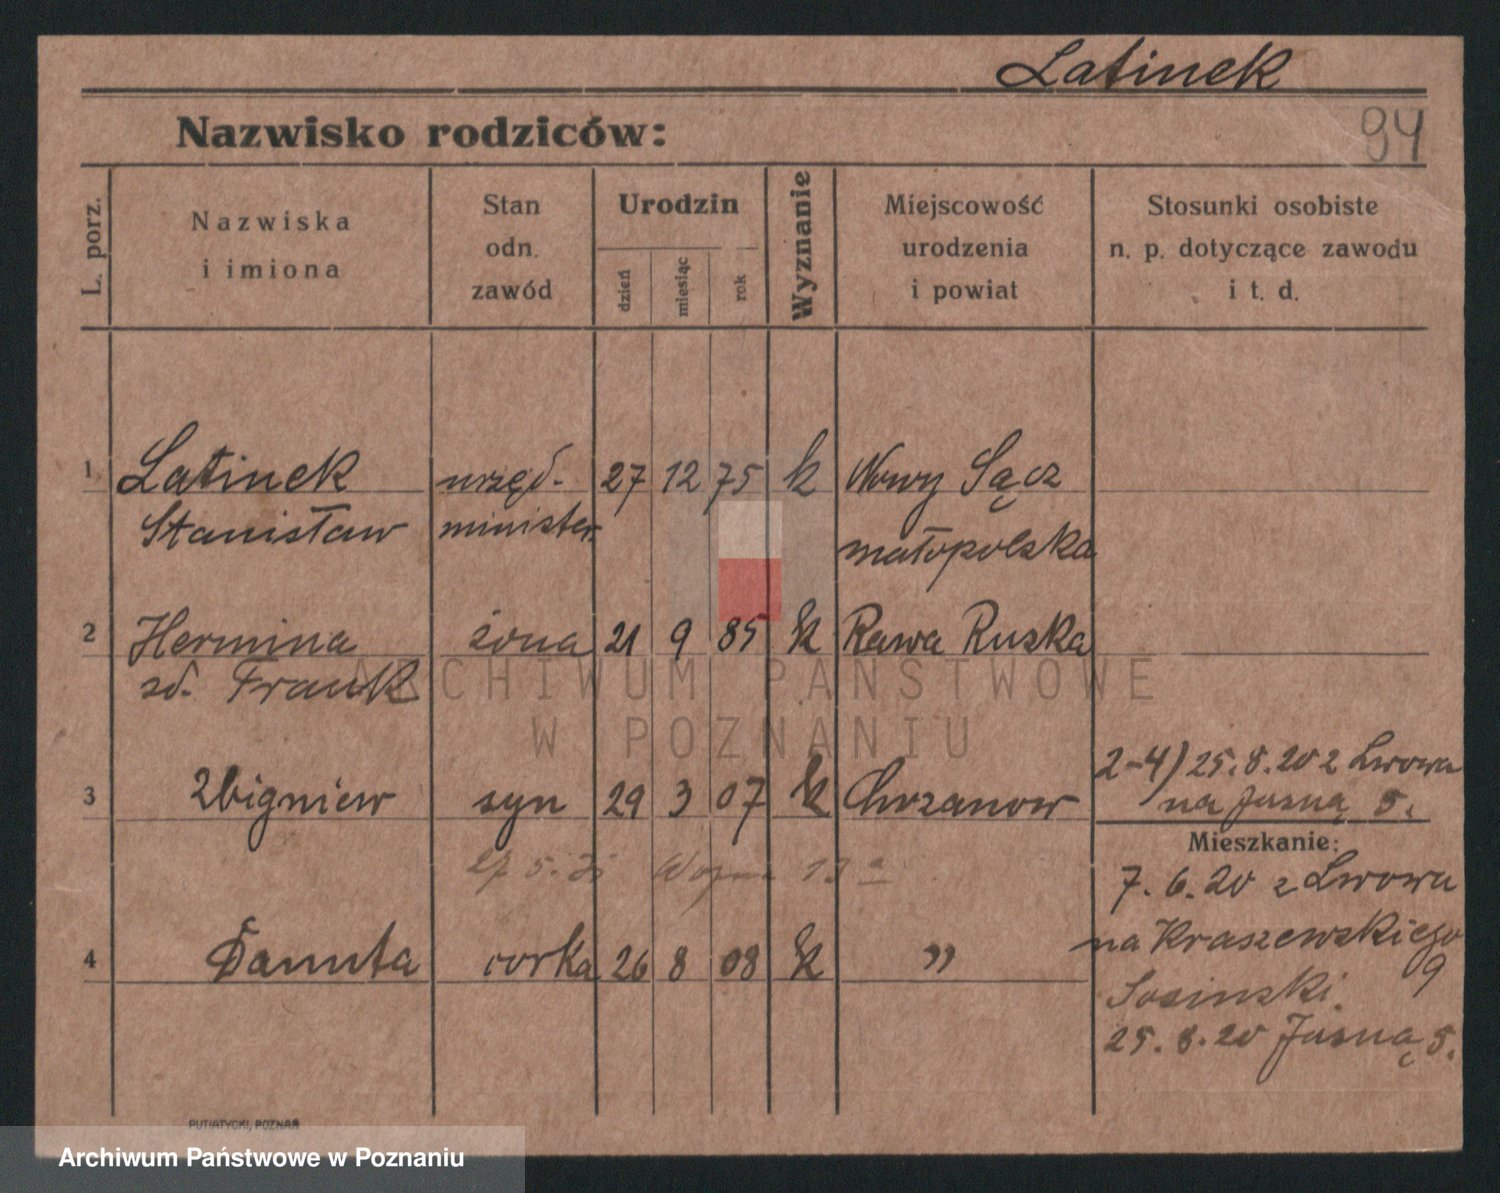 Latinek
Nazwisko rodziców:
94
L. porz.
Nazwiska
i imiona
Stan
odn.
zawód
Urodzin
dzień
miesiąc
rok
Wyznanie
Miejscowość
urodzenia
i powiat
Stosunki osobiste
n. p. dotyczące zawodu
i t. d.
1 Latinek urzęd- 27 12 75 k Nowy Sącz
Stanisław minister. małopolska
2 Hermina żona 21 9 85 k Rawa Ruska
zd. Frank
ARCHIWUM PAŃSTWOWE
W POZNANIU
2-4) 25.8.20 z Lwowa
3 Zbigniew syn 29 3 07 k Chrzanow na Jasną 5.
Mieszkanie:
13a
7.6.20 z Lwowa
na Kraszewskiego
4 Danuta corka 26 8 08 k " 9
Sosinski.
25.8.20 Jasną 5.
PUTIATYCKI, POZNAŃ
Archiwum Państwowe w Poznaniu